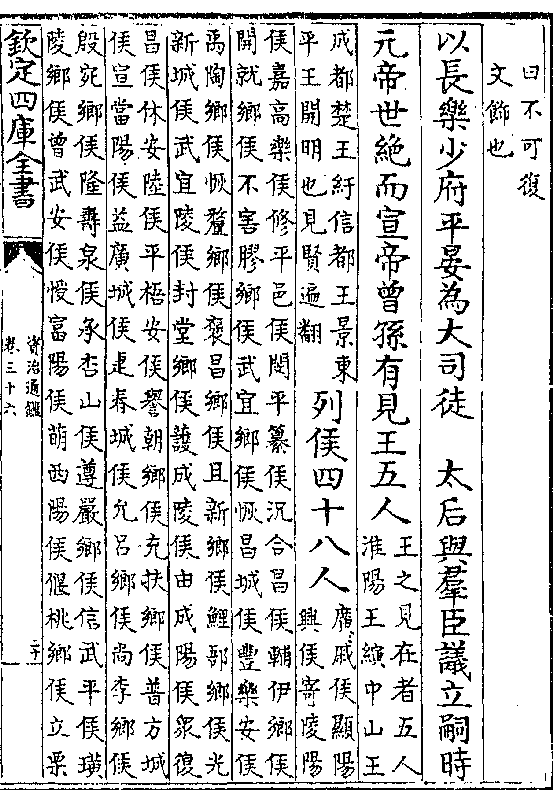 曰不可復
文飾也
以長樂少府平晏為大司徒　太后與羣臣議立嗣時
元帝世絶而宣帝曾孫有見王五人
王之見在者五人
淮陽王縯中山王
成都楚王紆信都王景東
平王開明也見賢遍翻
列侯四十八人
廣戚侯顯陽
興侯寄陵陽
侯嘉高樂侯修平邑侯閔平纂侯況合昌侯輔伊鄉侯
開就鄉侯不害膠鄉侯武宜鄉侯恢昌城侯豐樂安侯
禹陶鄉侯恢釐鄉侯褒昌鄉侯且新鄉侯鯉郚鄉侯光
新城侯武宜陵侯封堂鄉侯護成陵侯由成陽侯衆復
昌侯休安陸侯平梧安侯譽朝鄉侯充扶鄉侯普方城
侯宣當陽侯益廣城侯疌春城侯允吕鄉侯尚李鄉侯
殷宛鄉侯隆壽泉侯承杏山侯遵嚴鄉侯信武平侯璜
陵鄉侯曾武安侯㥅富陽侯萌西陽侯偃桃鄉侯立栗
欽定四庫全書
資治通鑑
卷三十六
二十